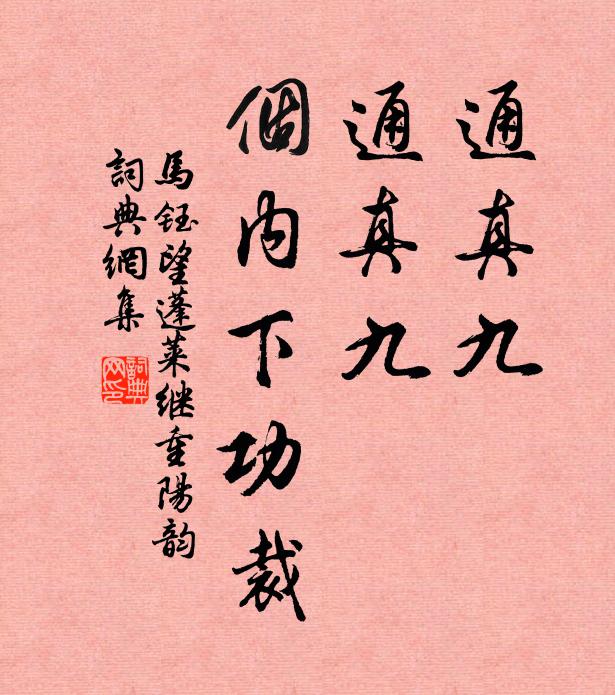 通真九
通真九
個内下功裁
馬鈺望蓬萊继重陽韵
詞典網集
詞典网印